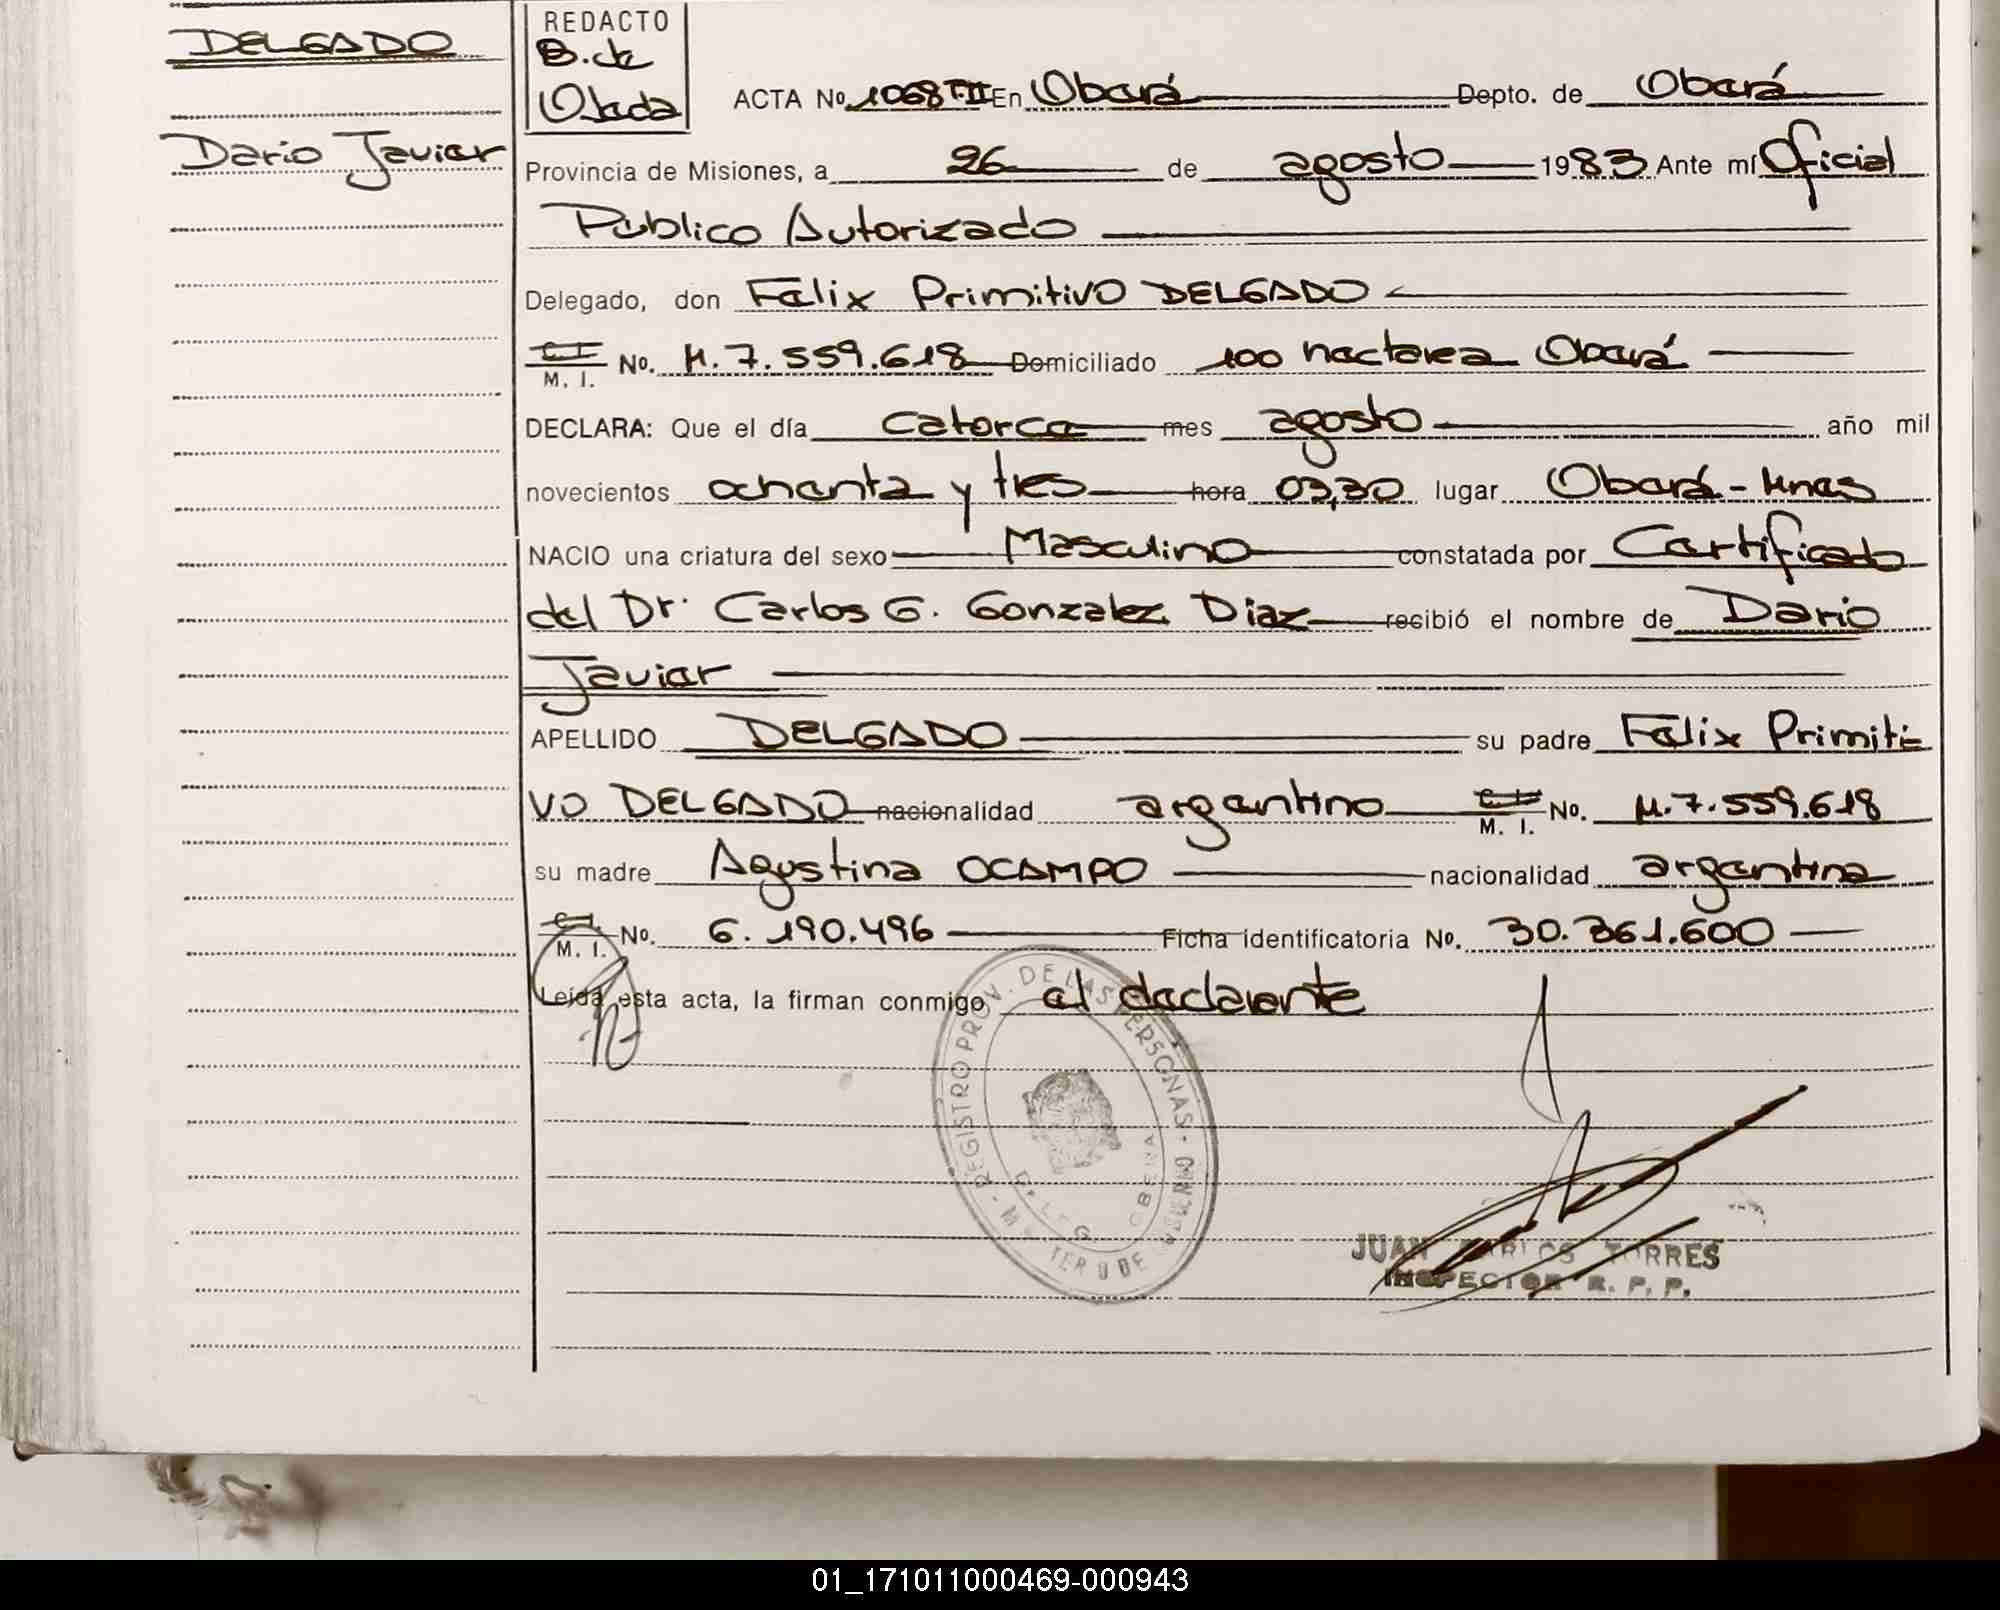 DELGADO
Dario Javier
REDACTO
B. de
Ojeda
ACTA No. 1068 T.II En Oberá Depto. de Oberá
Provincia de Misiones, a 26 de agosto 1983 Ante mí Oficial
Público Autorizado
Delegado, don Felix Primitivo DELGADO
C. I.
M. I. No. M. 7.559.618 Domiciliado 100 hectarea Oberá
DECLARA: Que el día catorce mes agosto año mil
novecientos ochenta y tres hora 03,30 lugar Oberá - Mnes
NACIO una criatura del sexo Masculino constatada por Certificado
del Dr. Carlos G. Gonzalez Diaz recibió el nombre de Dario
Javier
APELLIDO DELGADO su padre Felix Primiti-
vo DELGADO nacionalidad argentino C. I.
M. I. No. M. 7.559.618
su madre Agustina OCAMPO nacionalidad argentina
C. I.
M. I. No. 6.190.496 Ficha identificatoria No. 30.361.600
Leída esta acta, la firman conmigo el declarante
REGISTRO PROV. DE LAS PERSONAS
JUAN CARLOS TORRES
INSPECTOR R. P. P.
01_171011000469-000943